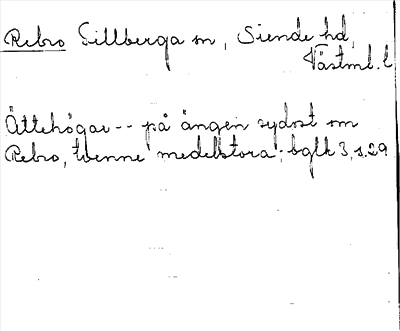 Rebro Lillberga sn, Siende hd,
Västml. l
Ättehögar -- på ängen sydost om
Rebro, tvenne medelstora; bglk 3, s. 29